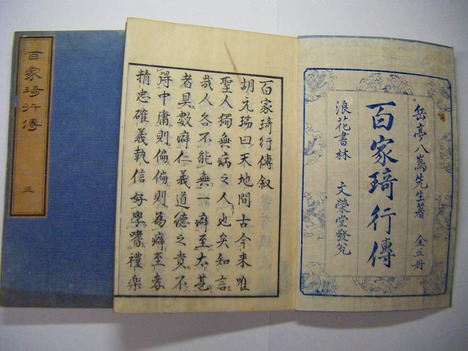 岳亭八嶌先生著 全五冊
百家琦行傳
浪花書林 文榮堂發兌
百家琦行傳叙
胡元瑞曰天地間古今來唯
聖人獨無病之人也矣知言
哉人各不能無一癖至大甚
者具數癖仁義道德之貴不
得中庸則偏偏則為癖至
精忠確義執信好學嗜禮樂
百家琦行傳 三